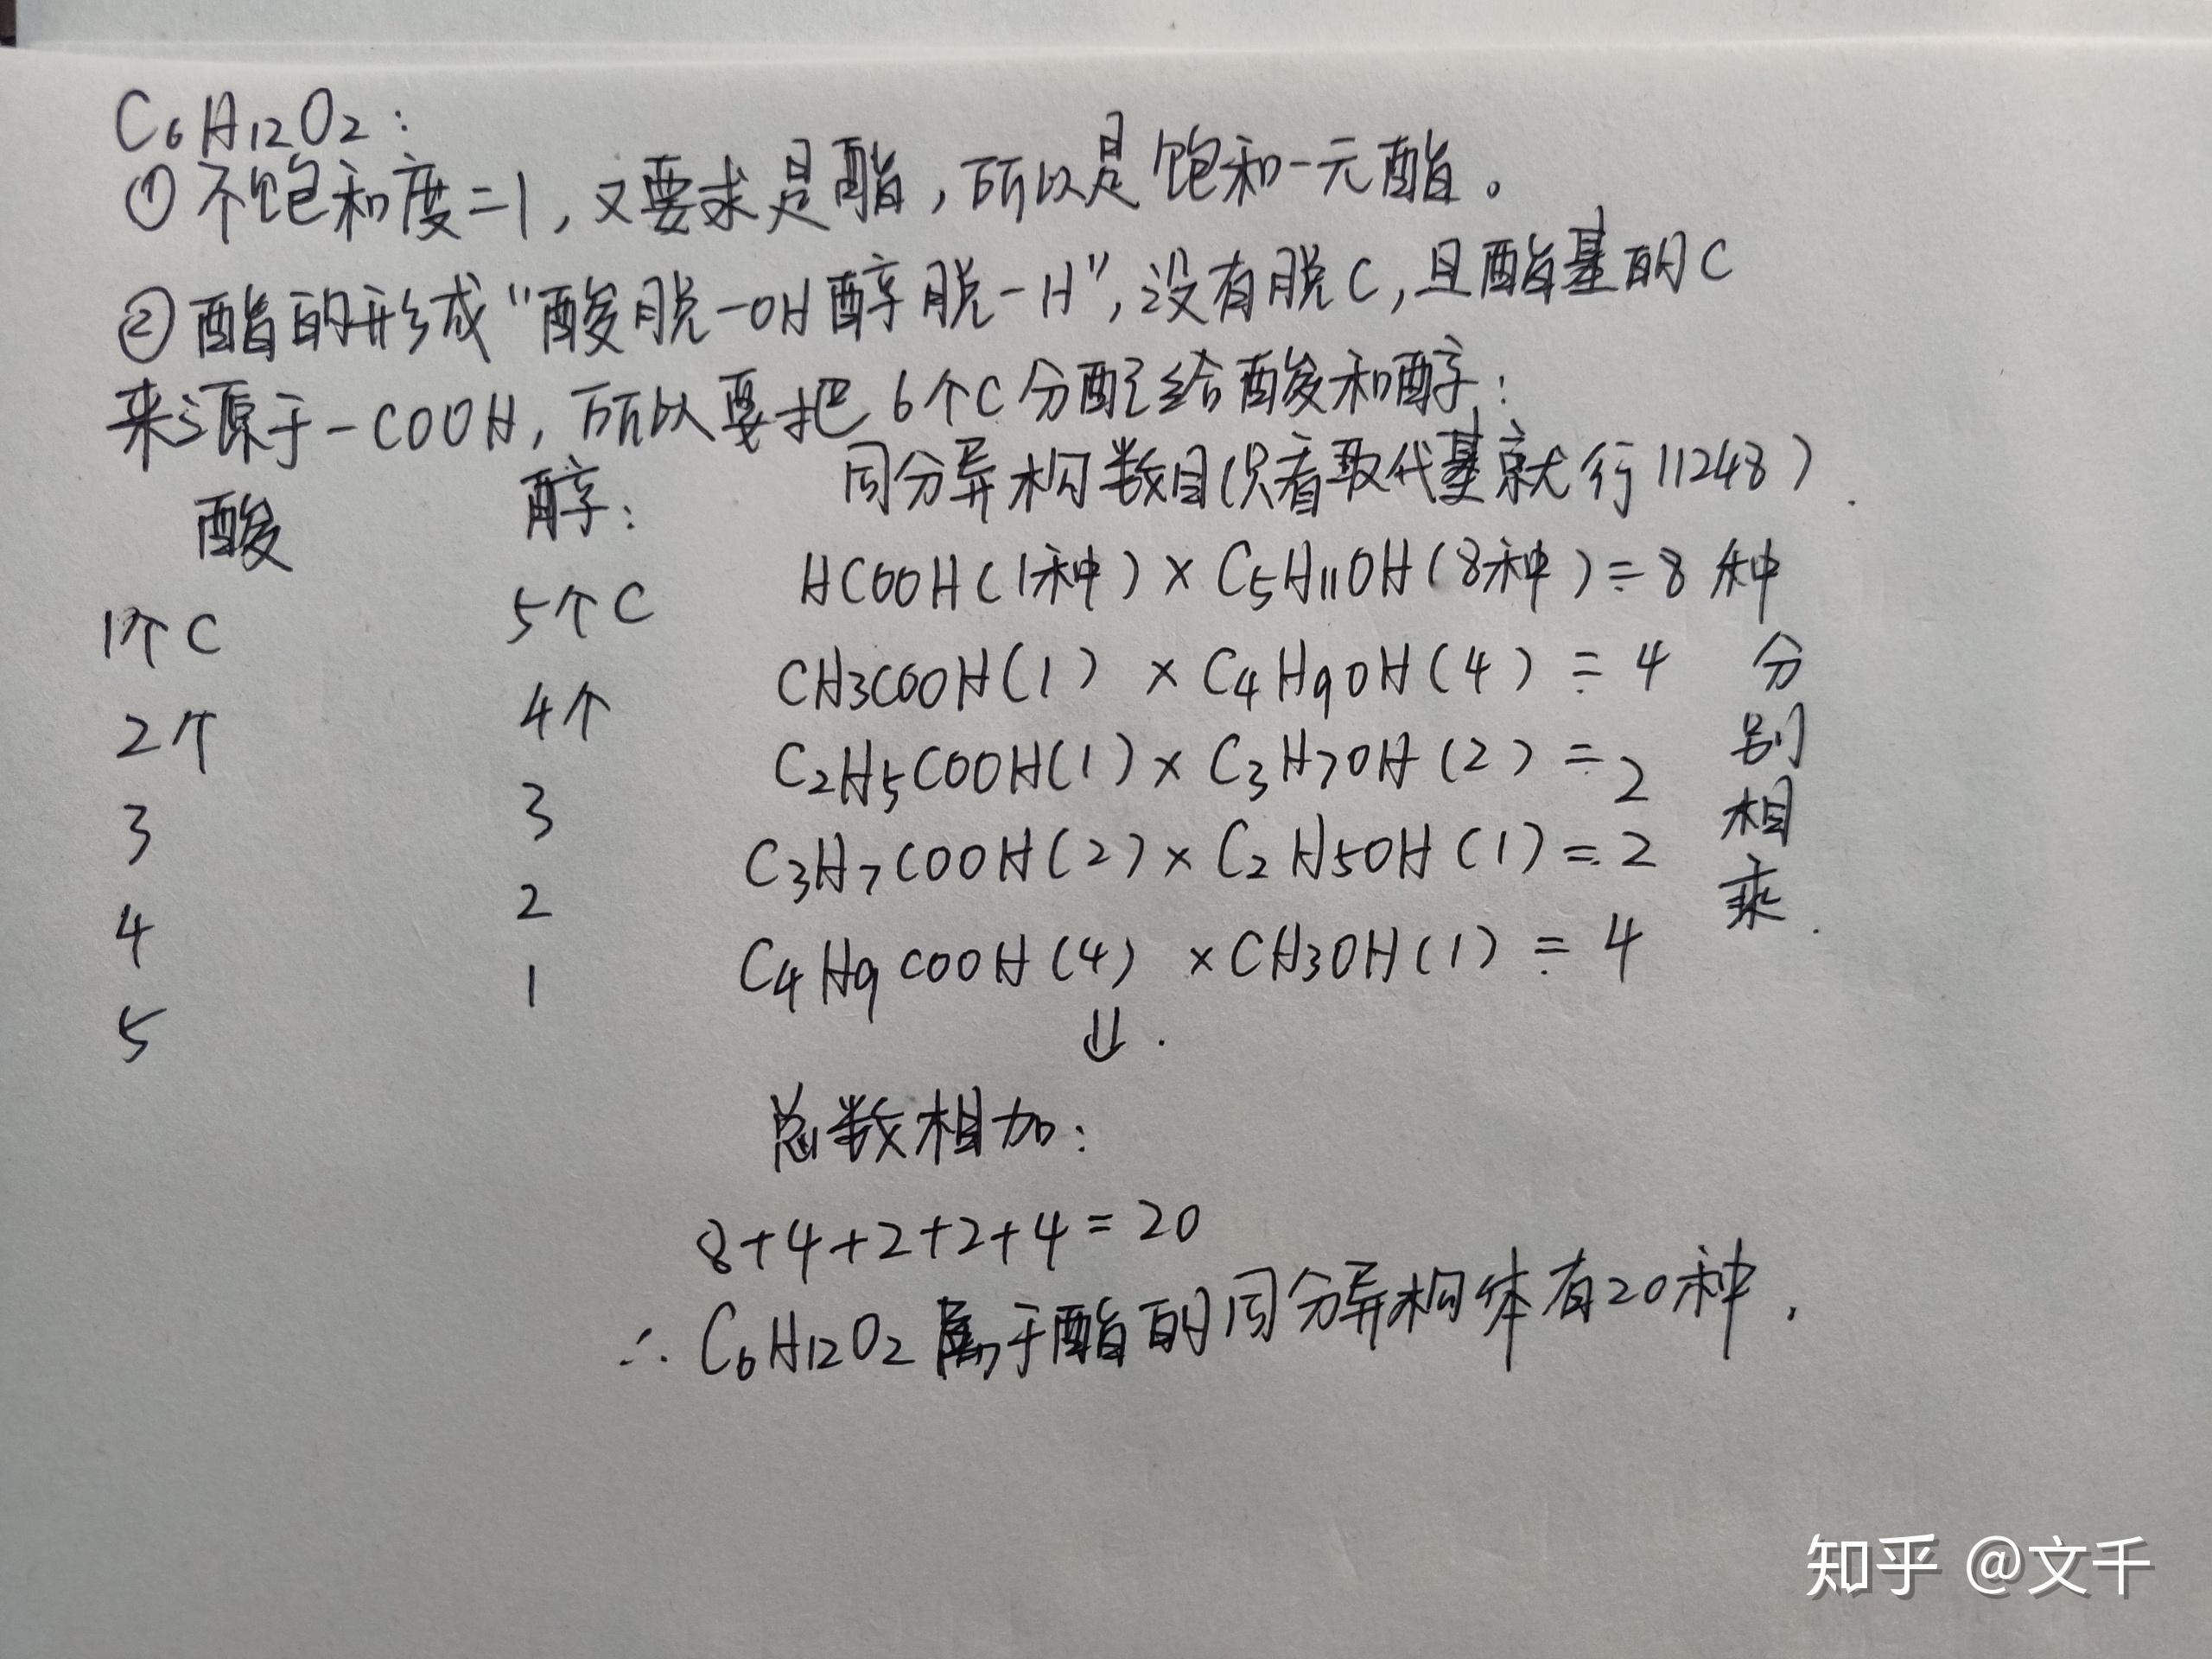 C₆H₁₂O₂:
①不饱和度=1,又要求是酯,所以是饱和一元酯。
②酯的形成"酸脱-OH醇脱-H",没有脱C,且酯基的C
来源于-COOH,所以要把6个C分配给酸和醇:
酸 醇: 同分异构数目(只看取代基就行11248).
1个C 5个C HCOOH(1种)×C₅H₁₁OH(8种)=8种
2个 4个 CH₃COOH(1)×C₄H₉OH(4)=4
3 3 C₂H₅COOH(1)×C₃H₇OH(2)=2
4 2 C₃H₇COOH(2)×C₂H₅OH(1)=2
5 1 C₄H₉COOH(4)×CH₃OH(1)=4
分别相乘.
⇓.
总数相加:
8+4+2+2+4=20
∴C₆H₁₂O₂属于酯的同分异构体有20种.
知乎 @文千